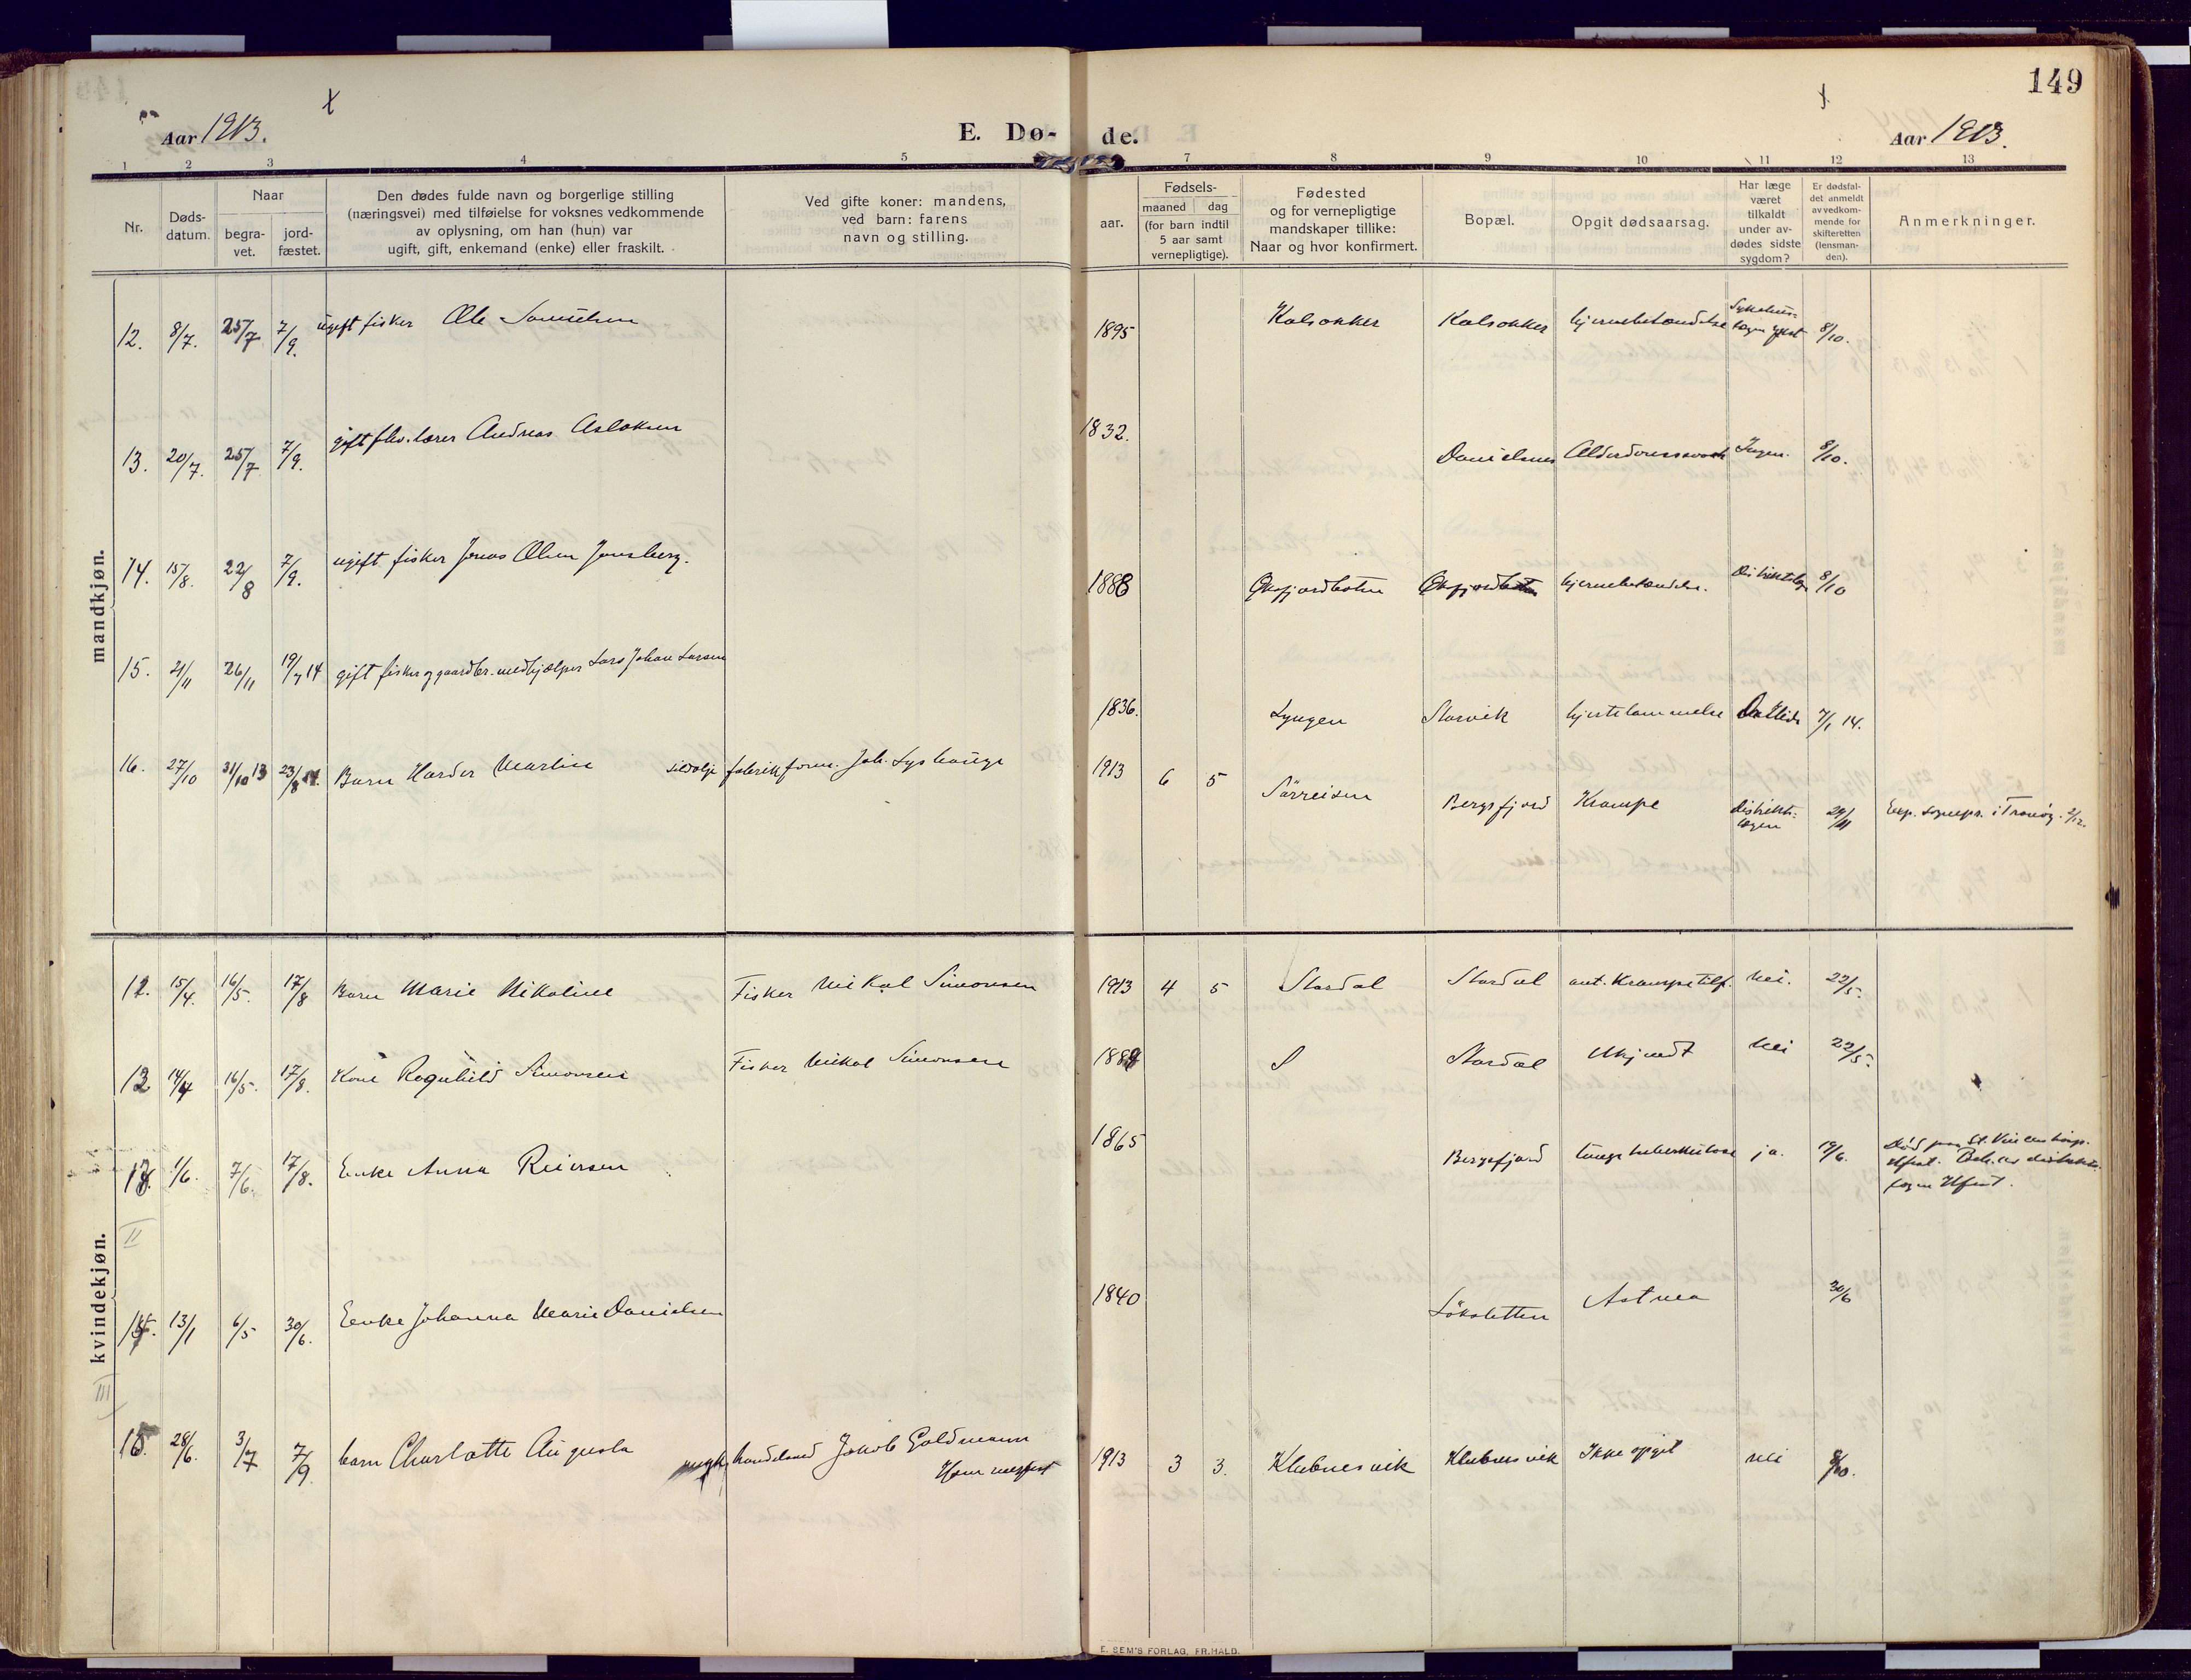 149
Aar 1913.
E. Dø-
de.
Aar 1913.
1 2 3 4 5 7 8 9 10 11 12 13
Nr.
Døds-
datum.
Naar
begra-
vet.
jord-
fæstet.
Den dødes fulde navn og borgerlige stilling
(næringsvei) med tilføielse for voksnes vedkommende
av oplysning, om han (hun) var
ugift, gift, enkemand (enke) eller fraskilt.
Ved gifte koner: mandens,
ved barn: farens
navn og stilling.
Fødsels-
aar.
maaned
dag
(for barn indtil
5 aar samt
vernepligtige).
Fødested
og for vernepligtige
mandskaper tillike:
Naar og hvor konfirmert.
Bopæl.
Opgit dødsaarsag.
Har læge
været
tilkaldt
under av-
dødes sidste
sygdom?
Er dødsfal-
det anmeldt
av vedkom-
mende for
skifteretten
(lensman-
den).
Anmerkninger.
mandkjøn.
12. 8/7. 25/7 7/9. ugift fisker Ole Samuelsen 1895 Kalsokker Kalsokker hjernebetændelse 8/10.
13. 20/7. 25/7 7/9. gift Andreas Aslaksen 1832. Danielsnes Ingen. 8/10.
14. 15/8. 22/8 7/9. ugift fisker Jonas Olsen 1888 Øksfjordbotn Øksfjordbotn hjernebetændelse. 8/10
15. 21/11 26/11 19/7 14 gift fisker og gaardbr. medhjælper Lars Johan Larsen 1836. Lyngen Storvik hjertelammelse 7/1 14.
16. 27/10 31/10 13 23/8 14. Barn Harder Martin sildolje fabrikform. Joh. Lyshauge 1913 6 5 Sørreisen Bergsfjord Krampe distrikts-
lægen 24/11 i Tranøy. 2/12.
kvindekjøn.
12. 15/4. 16/5. 17/8 Barn Marie Nikoline Fisker Nikal Simonsen 1913 4 5 Stordal Stordal ant. Krampetilf. Nei. 22/5.
13 14/4 16/5. 17/8. Kone Ragnhild Simonsen Fisker Nikal Simonsen Stordal Ukjendt Nei 22/5.
1/6. 7/6. 17/8. Enke Anna Reiersen 1865 Bergsfjord lungetuberkulose ja. 19/6. Død paa St. Vincenthosp.
Hfest. Beh. av distrikts-
lægen Hfest.
II
13/1 6/5 30/6. Enke Johanna Marie Danielsen 1840 Løksletten Astma 30/6
III
28/6. 3/7 7/9. barn Charlotte Augusta handelsmd Jakob Goldmann
Hammerfest 1913 3 3. Klubnesvik Klubnesvik Ikke opgit nei 8/10.
E. SEM'S FORLAG, FR.HALD.